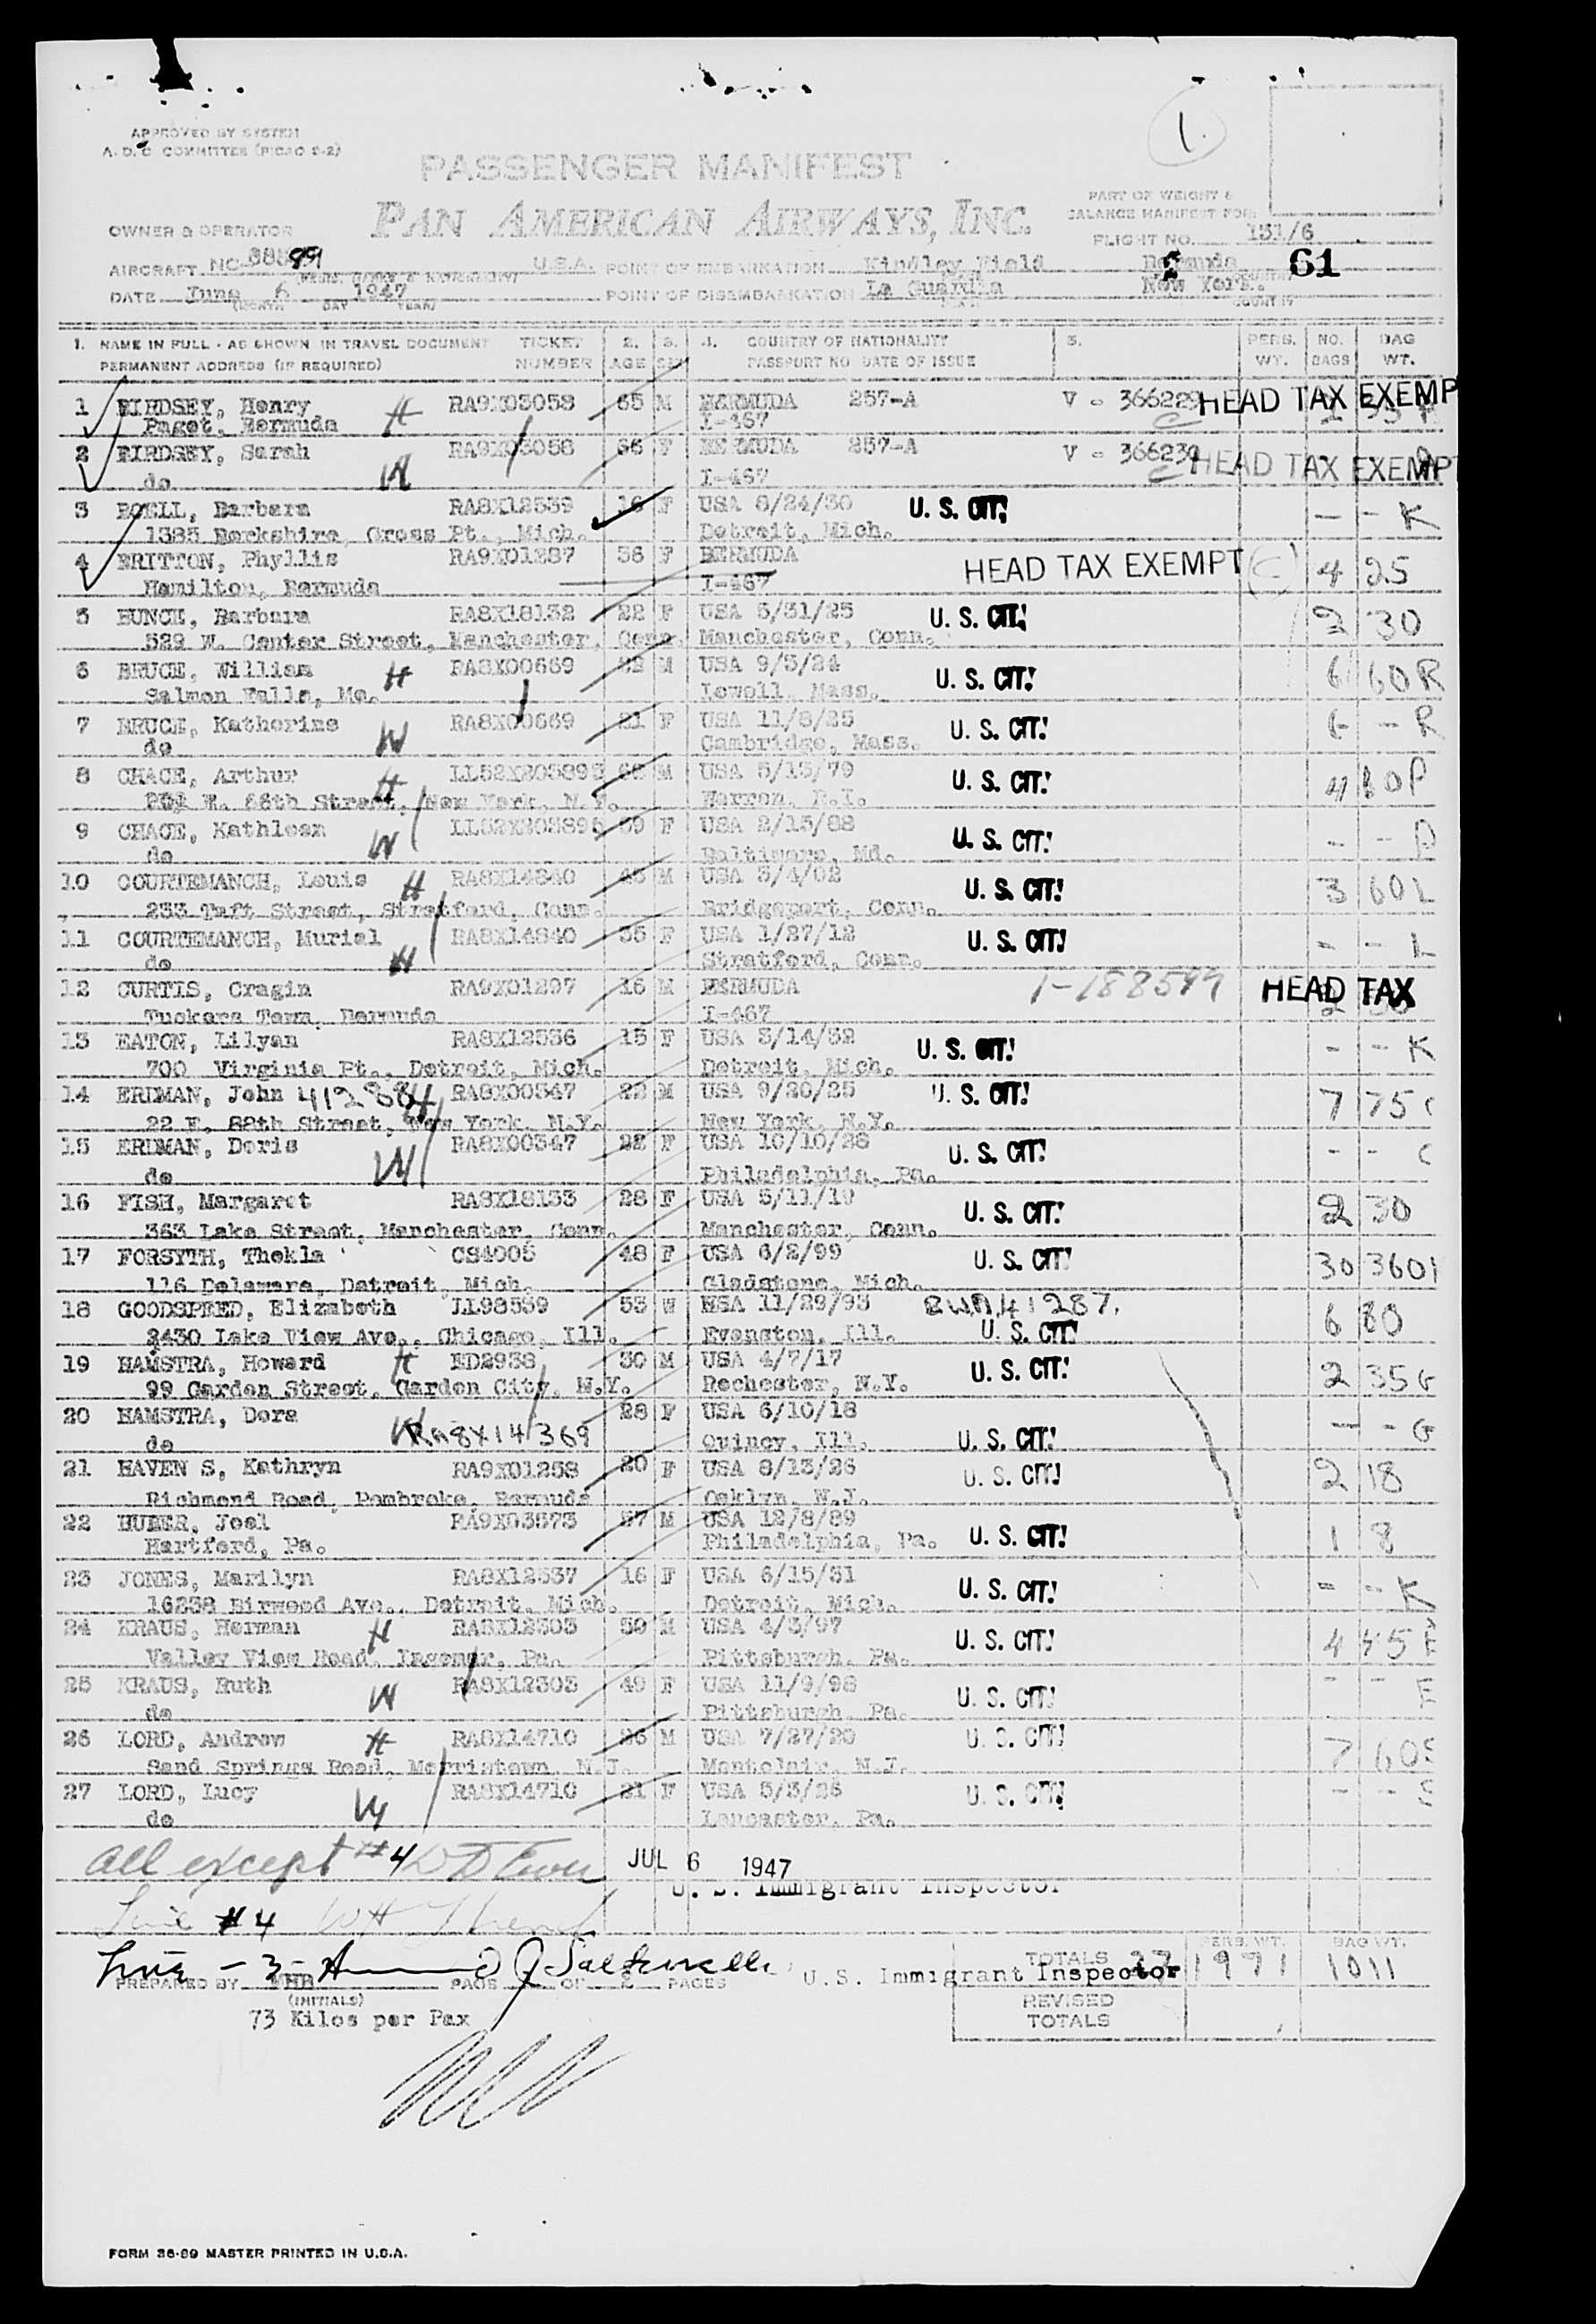 APPROVED BY SYSTEM
A.D.C COMMITTEE (PICAO S-2)
1.
PASSENGER MANIFEST
PAN AMERICAN AIRWAYS, INC.
PART OF WEIGHT &
BALANCE MANIFEST FOR:
OWNER & OPERATOR
FLIGHT NO. 131/6
AIRCRAFT NO. U.S.A. POINT OF EMBARKATION Kindley Field Bermuda 61
DATE June 6 1947 POINT OF DISEMBARKATION La Guardia New York.
(MONTH DAY YEAR)
1. NAME IN FULL - AS SHOWN IN TRAVEL DOCUMENT TICKET 2. 3. 4. COUNTRY OF NATIONALITY 5. PERS. NO. BAG
PERMANENT ADDRESS (IF REQUIRED) NUMBER AGE SEX PASSPORT NO DATE OF ISSUE WT. BAGS WT.
1 BIRDSEY, Henry H RA9X03058 65 M BERMUDA 257-A V - 366229 HEAD TAX EXEMP
Paget, Bermuda I-467
2 BIRDSEY, Sarah W RA9X03058 66 F BERMUDA 257-A V - 366230 HEAD TAX EXEMPT
do I-467
3 BOELL, Barbara RA8X12539 16 F USA 8/24/30 U. S. CIT. - - K
1385 Berkshire, Gross Pt., Mich. Detroit, Mich.
4 BRITTON, Phyllis RA9X01287 56 F BERMUDA HEAD TAX EXEMPT (C) 4 25
Hamilton, Bermuda I-467
5 BUNCE, Barbara RA8X18132 22 F USA 5/31/25 U. S. CIT. 2 30
529 W. Center Street, Manchester, Conn. Manchester, Conn.
6 BRUCE, William H RA8X00669 22 M USA 9/5/24 U. S. CIT. 6 60 R
Salmon Falls, Me. Lowell, Mass.
7 BRUCE, Katherine W RA8X00669 21 F USA 11/8/25 U. S. CIT. - - R
do Cambridge, Mass.
8 CHACE, Arthur H LL52X203895 68 M USA 5/15/79 U. S. CIT. 4 80 P
E. 66th Street, New York, N.Y. Warren, R.I.
9 CHACE, Kathleen W LL52X203895 59 F USA 2/15/88 U. S. CIT. - - P
do Baltimore, Md.
10 COURTEMANCH, Louis H RA8X14840 45 M USA 5/4/02 U. S. CIT. 3 60 L
233 Taft Street, Stratford, Conn. Bridgeport, Conn.
11 COURTEMANCH, Muriel RA8X14840 35 F USA 1/27/12 U. S. CIT. - - L
do Stratford, Conn.
12 CURTIS, Cragin RA9X01297 16 M BERMUDA HEAD TAX
Tuckers Town, Bermuda I-467
13 EATON, Lilyan RA8X12536 15 F USA 3/14/32 U. S. CIT. - - K
700 Virginia Pt., Detroit, Mich. Detroit, Mich.
14 ERDMAN, John 41288 H RA8X00347 22 M USA 9/20/25 U. S. CIT. 7 75 C
22 E. 88th Street, New York, N.Y. New York, N.Y.
15 ERDMAN, Doris W RA8X00347 22 F USA 10/10/28 U. S. CIT. - - C
do Philadelphia, Pa.
16 FISH, Margaret RA8X18133 28 F USA 5/11/19 U. S. CIT. 2 30
363 Lake Street, Manchester, Conn. Manchester, Conn.
17 FORSYTH, Thekla CS4005 48 F USA 6/2/99 U. S. CIT. 30 360
116 Delaware, Detroit, Mich. Gladstone, Mich.
18 GOODSPEED, Elizabeth LL98559 53 W USA 11/29/93 41287. 6 80
2430 Lake View Ave., Chicago, Ill. Evanston, Ill. U. S. CIT.
19 HAMSTRA, Howard H ED2938 30 M USA 4/7/17 U. S. CIT. 2 35 G
99 Garden Street, Garden City, N.Y. Rochester, N.Y.
20 HAMSTRA, Dora W RA8X14369 28 F USA 6/10/18 - - G
do Quincy, Ill. U. S. CIT.
21 HAVEN S, Kathryn RA9X01258 20 F USA 8/13/26 U. S. CIT. 2 18
Richmond Road, Pembroke, Bermuda Oaklyn, N.J.
22 HUBER, Joel RA9X03573 57 M USA 12/8/89 1 8
Hartford, Pa. Philadelphia, Pa. U. S. CIT.
23 JONES, Marilyn RA8X12537 16 F USA 6/15/31 U. S. CIT. - - K
16238 Birwood Ave., Detroit, Mich. Detroit, Mich.
24 KRAUS, Herman H RA8X12303 50 M USA 4/3/97 U. S. CIT. 4 45 E
Valley View Road, Ingomar, Pa. Pittsburgh, Pa.
25 KRAUS, Ruth W RA8X12303 49 F USA 11/9/98 U. S. CIT. - - E
do Pittsburgh, Pa.
26 LORD, Andrew H RA8X14710 26 M USA 7/27/20 U. S. CIT. 7 60 S
Sand Springs Road, Morristown, N.J. Montclair, N.J.
27 LORD, Lucy W RA8X14710 21 F USA 5/3/26 U. S. CIT. - - S
do Lancaster, Pa.
All except #4 JUL 6 1947
U. S. Immigrant Inspector
Line #4
Line - 3 -
PREPARED BY MHB PAGE OF 2 PAGES U.S. Immigrant Inspector TOTALS 27 PERS. WT. 1971 BAG WT. 1011
(INITIALS)
73 Kilos per Pax
REVISED
TOTALS
FORM 36-89 MASTER PRINTED IN U.S.A.